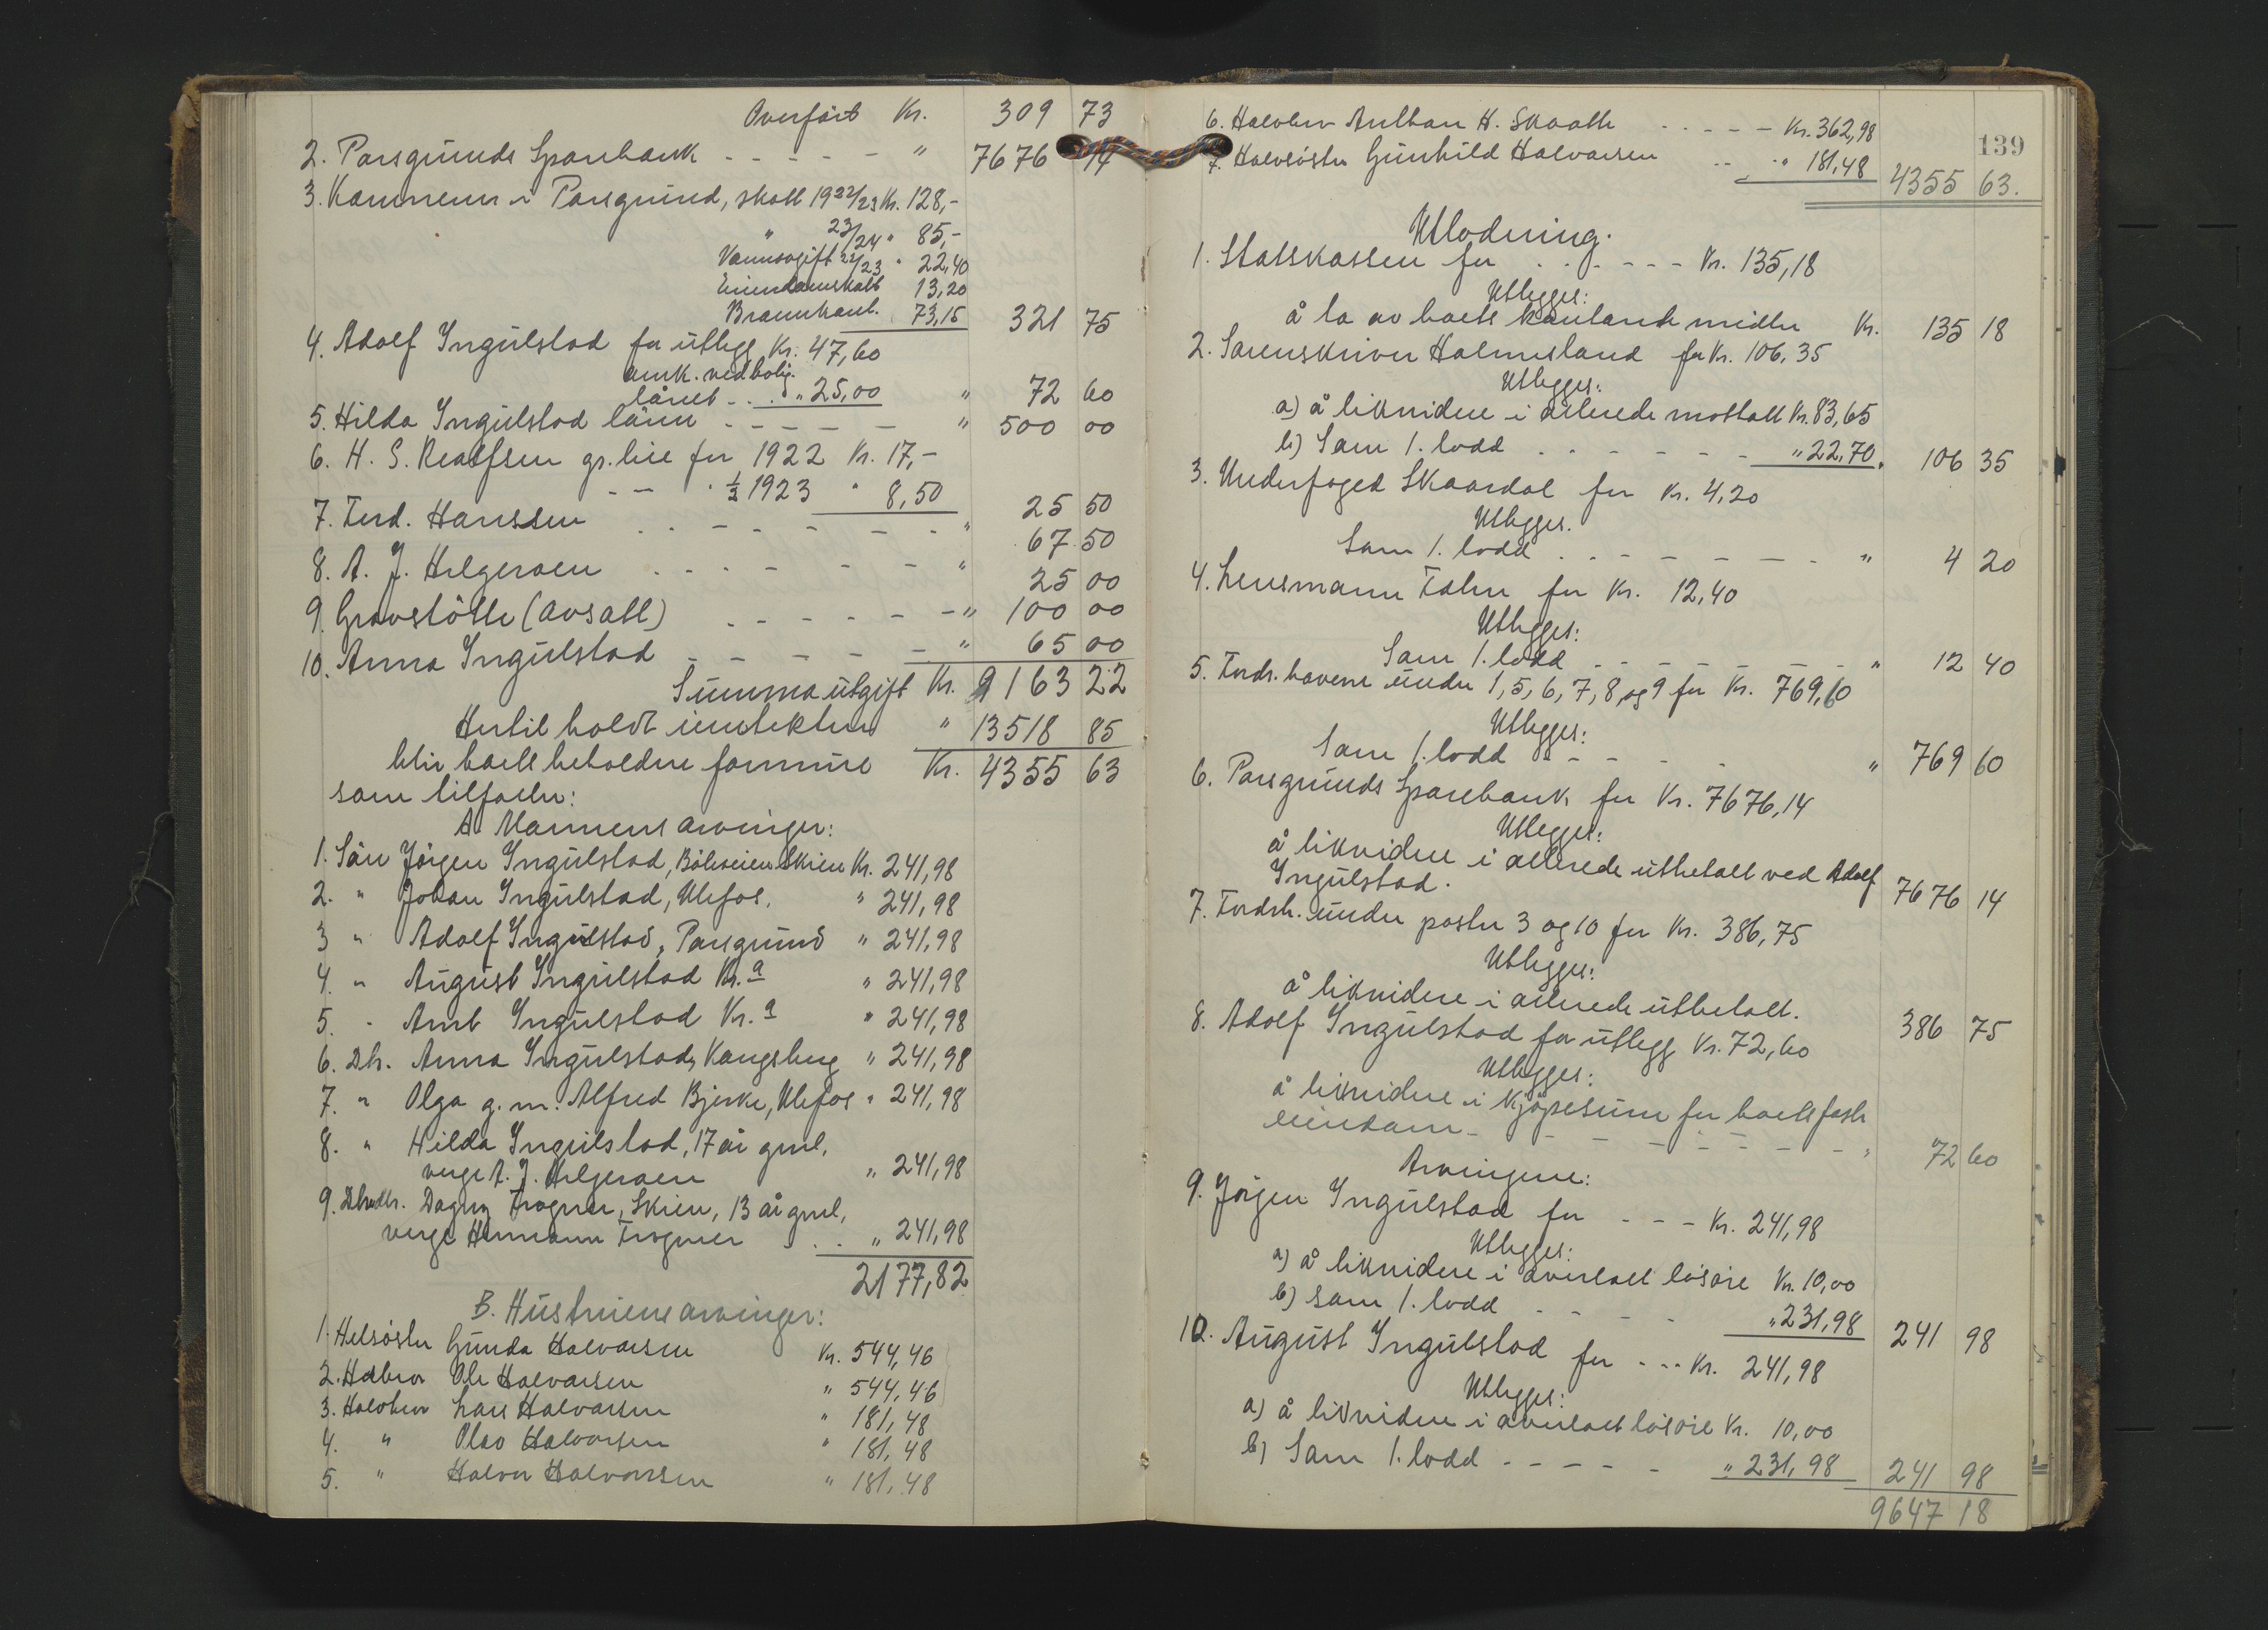 Overført Kr. 309 73
2. Porsgrunds Sparebank - - - - - " 7676 14
3. Kæmneren i Porsgrund, skatt 1922/23 Kr. 128,-
" 23/24 " 85,-
Vannavgift 22/23 " 22,40
Eiendomsskatt 13,20
Brannkont. 73,15 321 75
4. Adolf Ingulstad for utlegg Kr. 47,60
omk. ved bolig-
lånet - . . " 25,00 " 72 60
5. Hilda Ingulstad lønn - - - - - " 500 00
6. H. S. Realfsen gr.leie for 1922 Kr. 17,-
- - " ½ 1923 " 8,50 25 50
7. Ferd. Hanssen . - - - - - . " 67 50
8. A. J. Helgeroen . - . - - - " 25 00
9. Gravstøtte (avsatt) - - - - - " 100 00
10. Anna Ingulstad - - - - - - " 65 00
Summa utgift Kr. 9163 22
Hertil holdt inntekten " 13518 85
blir boets beholdne formue Kr. 4355 63
som tilfaller:
A. Mannens arvinger:
1. Søn Jørgen Ingulstad, Böleveien Skien Kr. 241,98
2. " Johan Ingulstad, Ulefos. " 241,98
3 " Adolf Ingulstad, Porsgrund " 241,98
4. " August Ingulstad Kr.a " 241,98
5. " Arnt Ingulstad Kr.a " 241,98
6. Dtr. Anna Ingulstad, Kongsberg " 241,98
7. " Olga g.m. Alfred Bjerke, Ulefos " 241,98
8. " Hilda Ingulstad, 17 år gml,
verge A. J. Helgeroen " 241,98
9. Dagny Frogner, Skien, 13 år gml,
verge Hermann Frogner . . " 241,98
2177,82
B. Hustruens arvinger:
1. Helsøster Gunda Halvorsen Kr. 544,46
2. Helbror Ole Halvorsen " 544,46
3. Halvbror Lars Halvorsen " 181,48
4. " Olav Halvorsen " 181,48
5. " Halvor Halvorsen " 181,48
139
6. Halvbror Anthon H. Skaatte - - - - - Kr. 362,98
7. Halvsøster Gunhild Halvorsen - - " 181,48 4355 63.
Utlodning.
1. Statskassen for . . . - - - Kr. 135,18
Utlegges:
å ta av boets kontante midler Kr. 135 18
2. Sorenskriver Holmesland for Kr. 106,35
Utlegges:
a) å likvidere i allerede mottatt Kr. 83,65
b) Som 1. lodd . - - - - - " 22,70. 106 35
3. Underfoged Skaardal for Kr. 4,20
Utlegges.
Som 1. lodd . . - - - - - . " 4 20
4. Lensmann Fahn for Kr. 12,40
Utlegges:
Som 1. lodd - - - - - - - " 12 40
5. Fordr.haverne under 1, 5, 6, 7, 8, og 9 for Kr. 769,60
Utlegges:
Som 1. lodd - - - - - " 769 60
6. Porsgrunds Sparebank for Kr. 7676,14
Utlegges:
å likvidere i allerede utbetalt ved Adolf
Ingulstad. 7676 14
7. Fordrh. under poster 3 og 10 for Kr. 386,75
Utlegges:
å likvidere i allerede utbetalt. 386 75
8. Adolf Ingulstad for utlegg Kr. 72,60
Utlegges:
å likvidere i kjøpesum for boets faste
eiendom - - - - - - - " 72 60
Arvingene:
9. Jørgen Ingulstad for - - - Kr. 241,98
Utlegges:
a) å likvidere i overtatt løsøre Kr. 10,00
b) som 1. lodd - - - - " 231,98 241 98
10. August Ingulstad for - - - Kr. 241,98
Utlegges:
a) å likvidere i overtatt løsøre Kr. 10,00
b) Som 1. lodd - - - - - " 231,98 241 98
9647 18